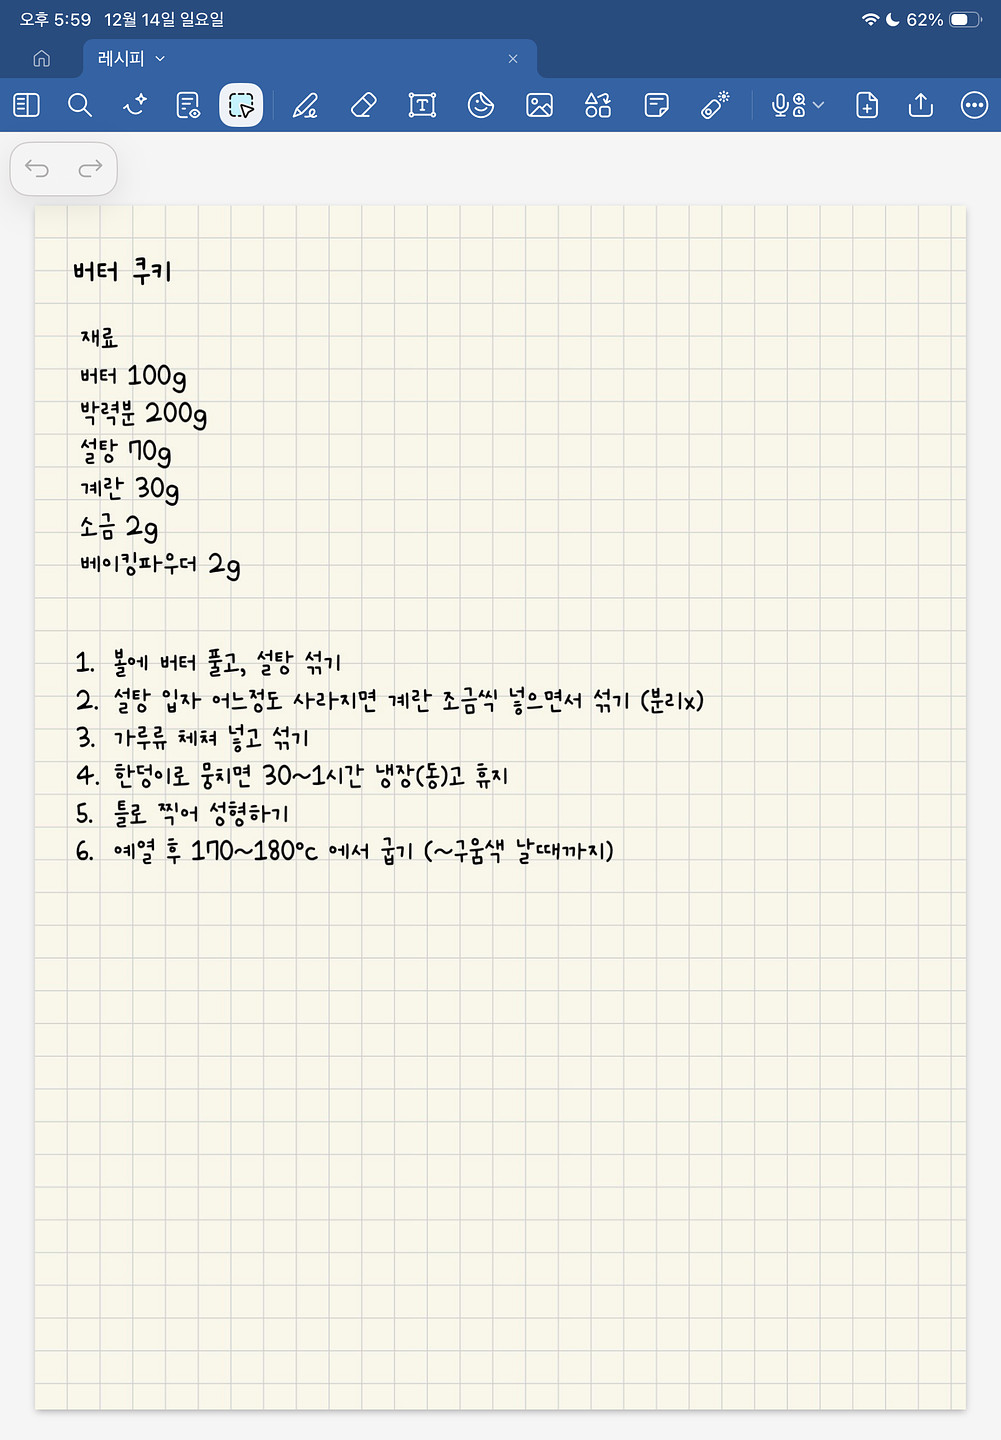 오후 5:59 12월 14일 일요일 62%
레시피
버터 쿠키
재료
버터 100g
박력분 200g
설탕 70g
계란 30g
소금 2g
베이킹파우더 2g
1. 볼에 버터 풀고, 설탕 섞기
2. 설탕 입자 어느정도 사라지면 계란 조금씩 넣으면서 섞기 (분리x)
3. 가루류 체쳐 넣고 섞기
4. 한덩이로 뭉치면 30~1시간 냉장(동)고 휴지
5. 틀로 찍어 성형하기
6. 예열 후 170~180°c 에서 굽기 (~구움색 날때까지)